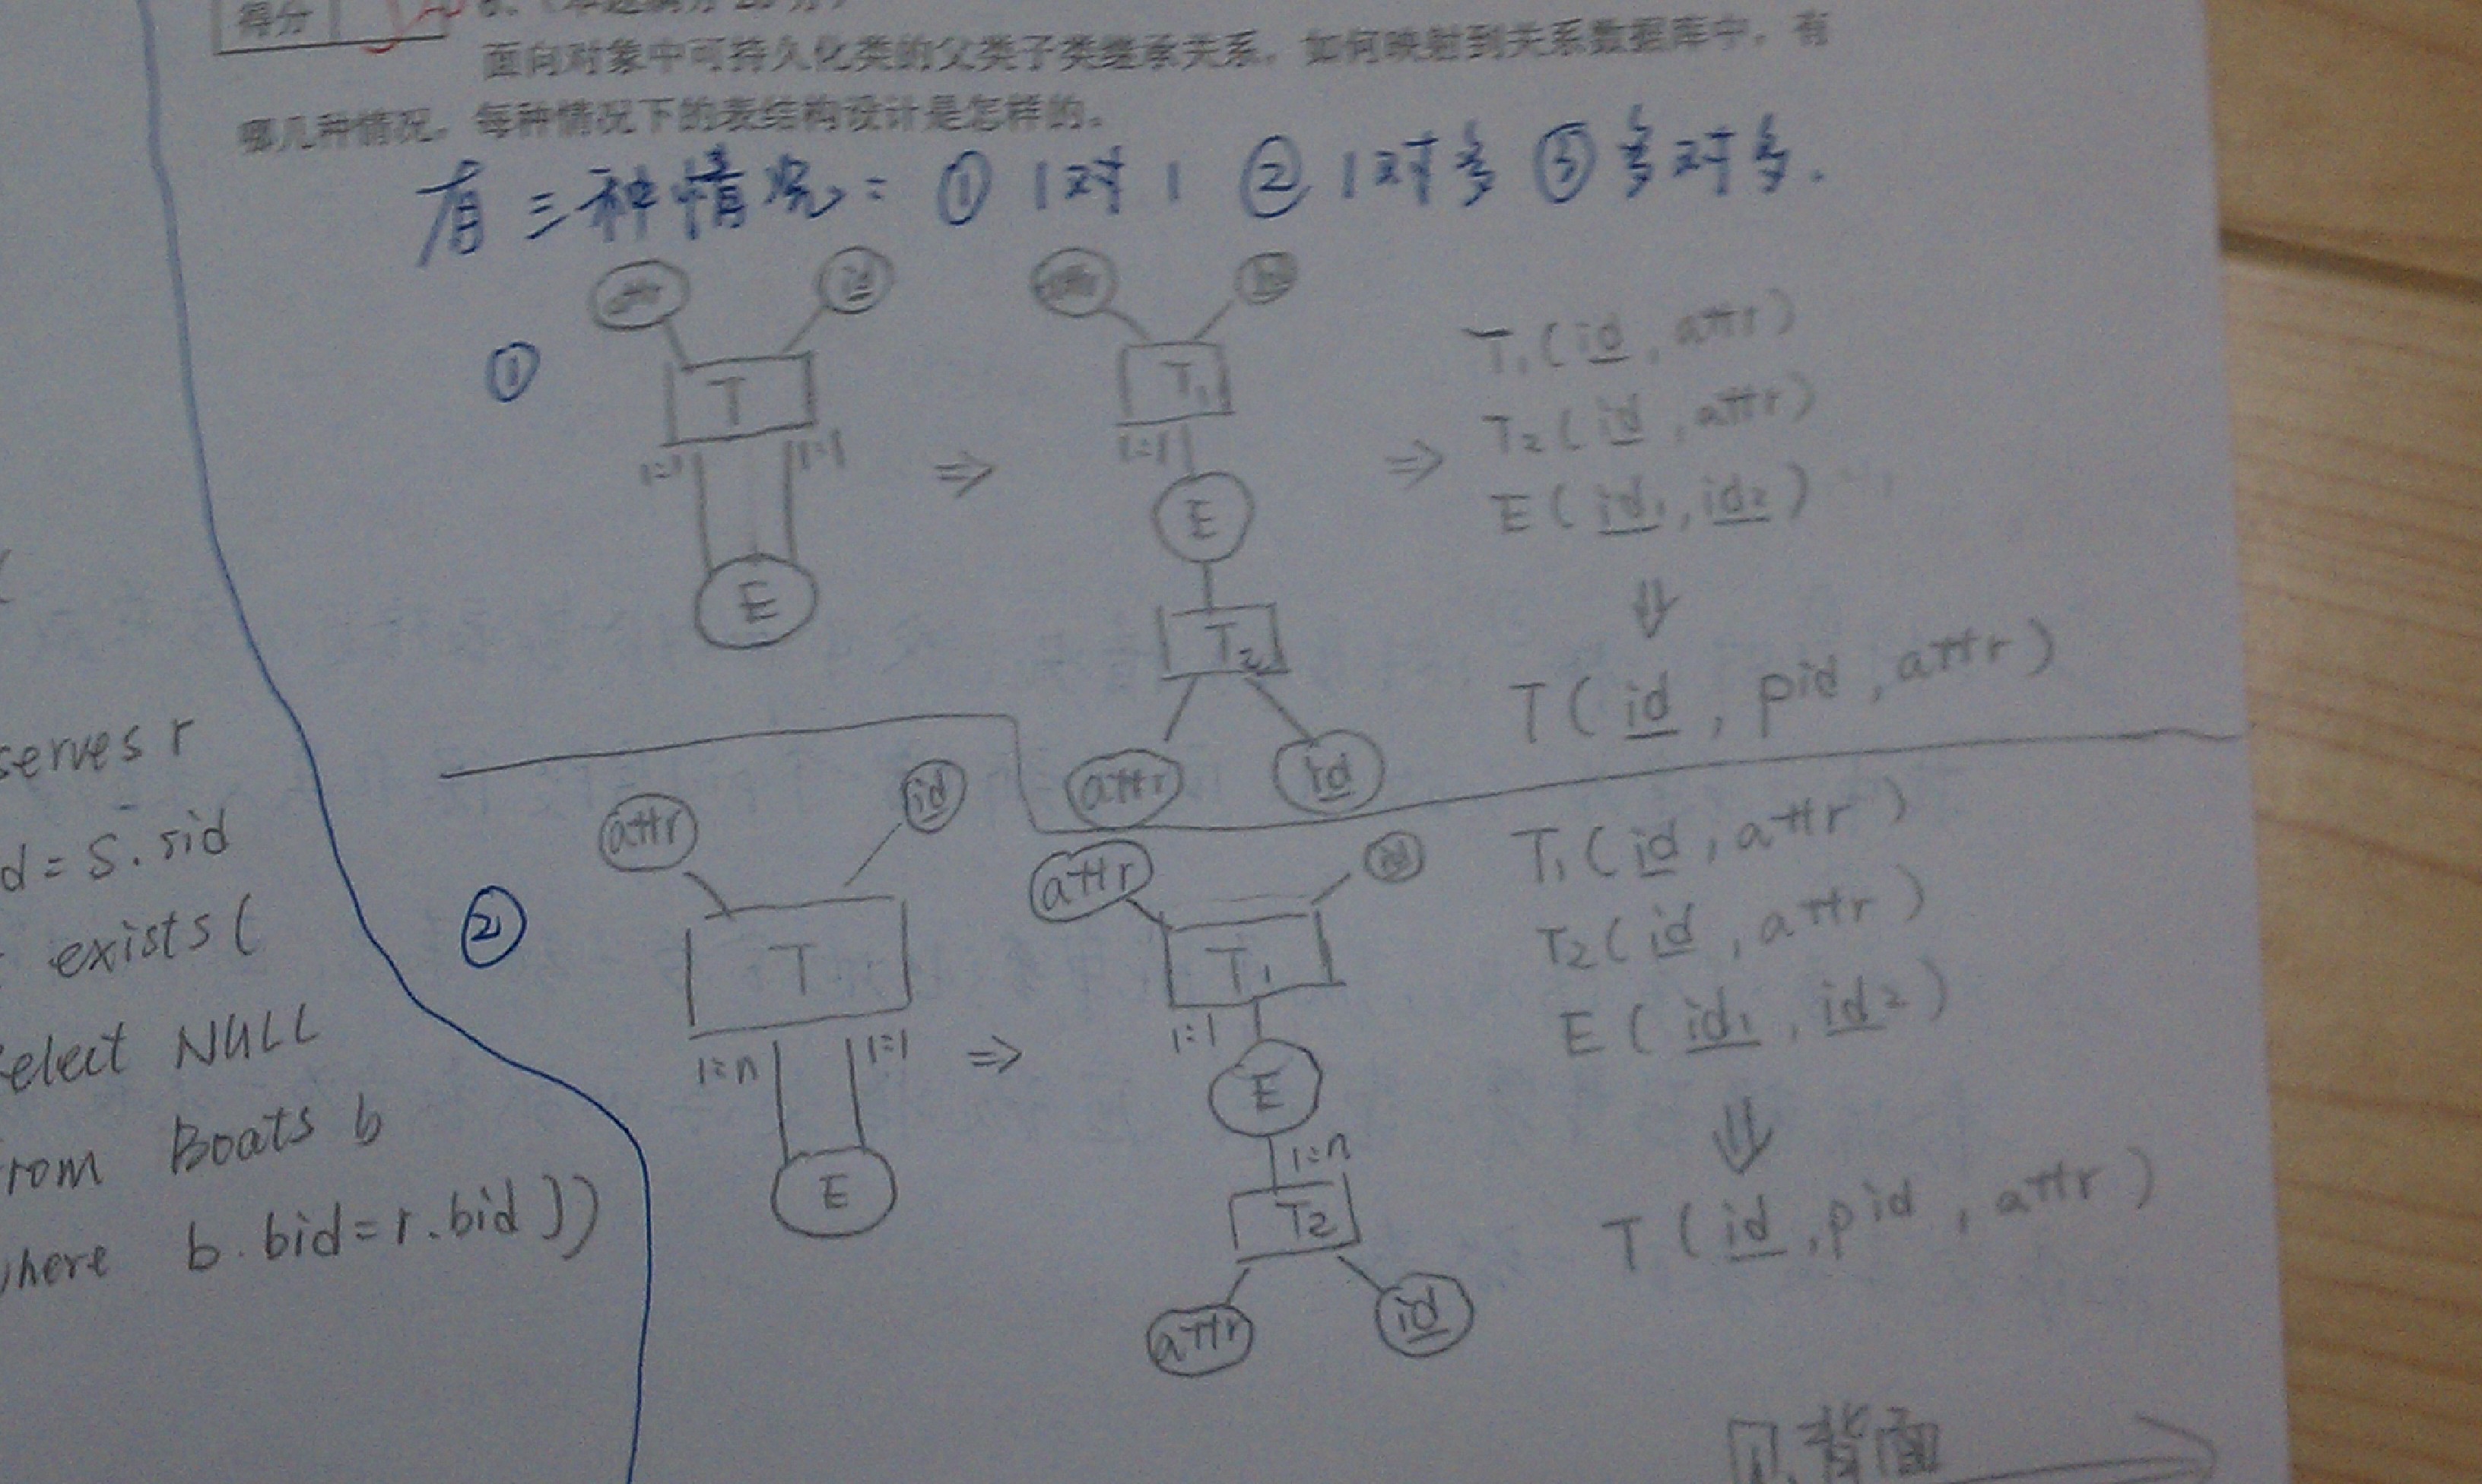 得分
6、（本题满分
面向对象中可持久化类的父类子类继承关系，如何映射到关系数据库中，有
哪几种情况，每种情况下的表结构设计是怎样的。
有三种情况: ① 1对1 ② 1对多 ③ 多对多.
①
id
T
1:1 1:1
E
⇒
T1
1:1
E
T2
attr id
⇒
T1(id, attr)
T2(id, attr)
E(id1, id2)
⇓
T(id, pid, attr)
②
attr id
T
1:n 1:1
E
⇒
attr id
T1
1:1
E
1:n
T2
attr id
T1(id, attr)
T2(id, attr)
E(id1, id2)
⇓
T(id, pid, attr)
背面
serves r
d = S.sid
exists(
select NULL
from Boats b
where b.bid=r.bid))